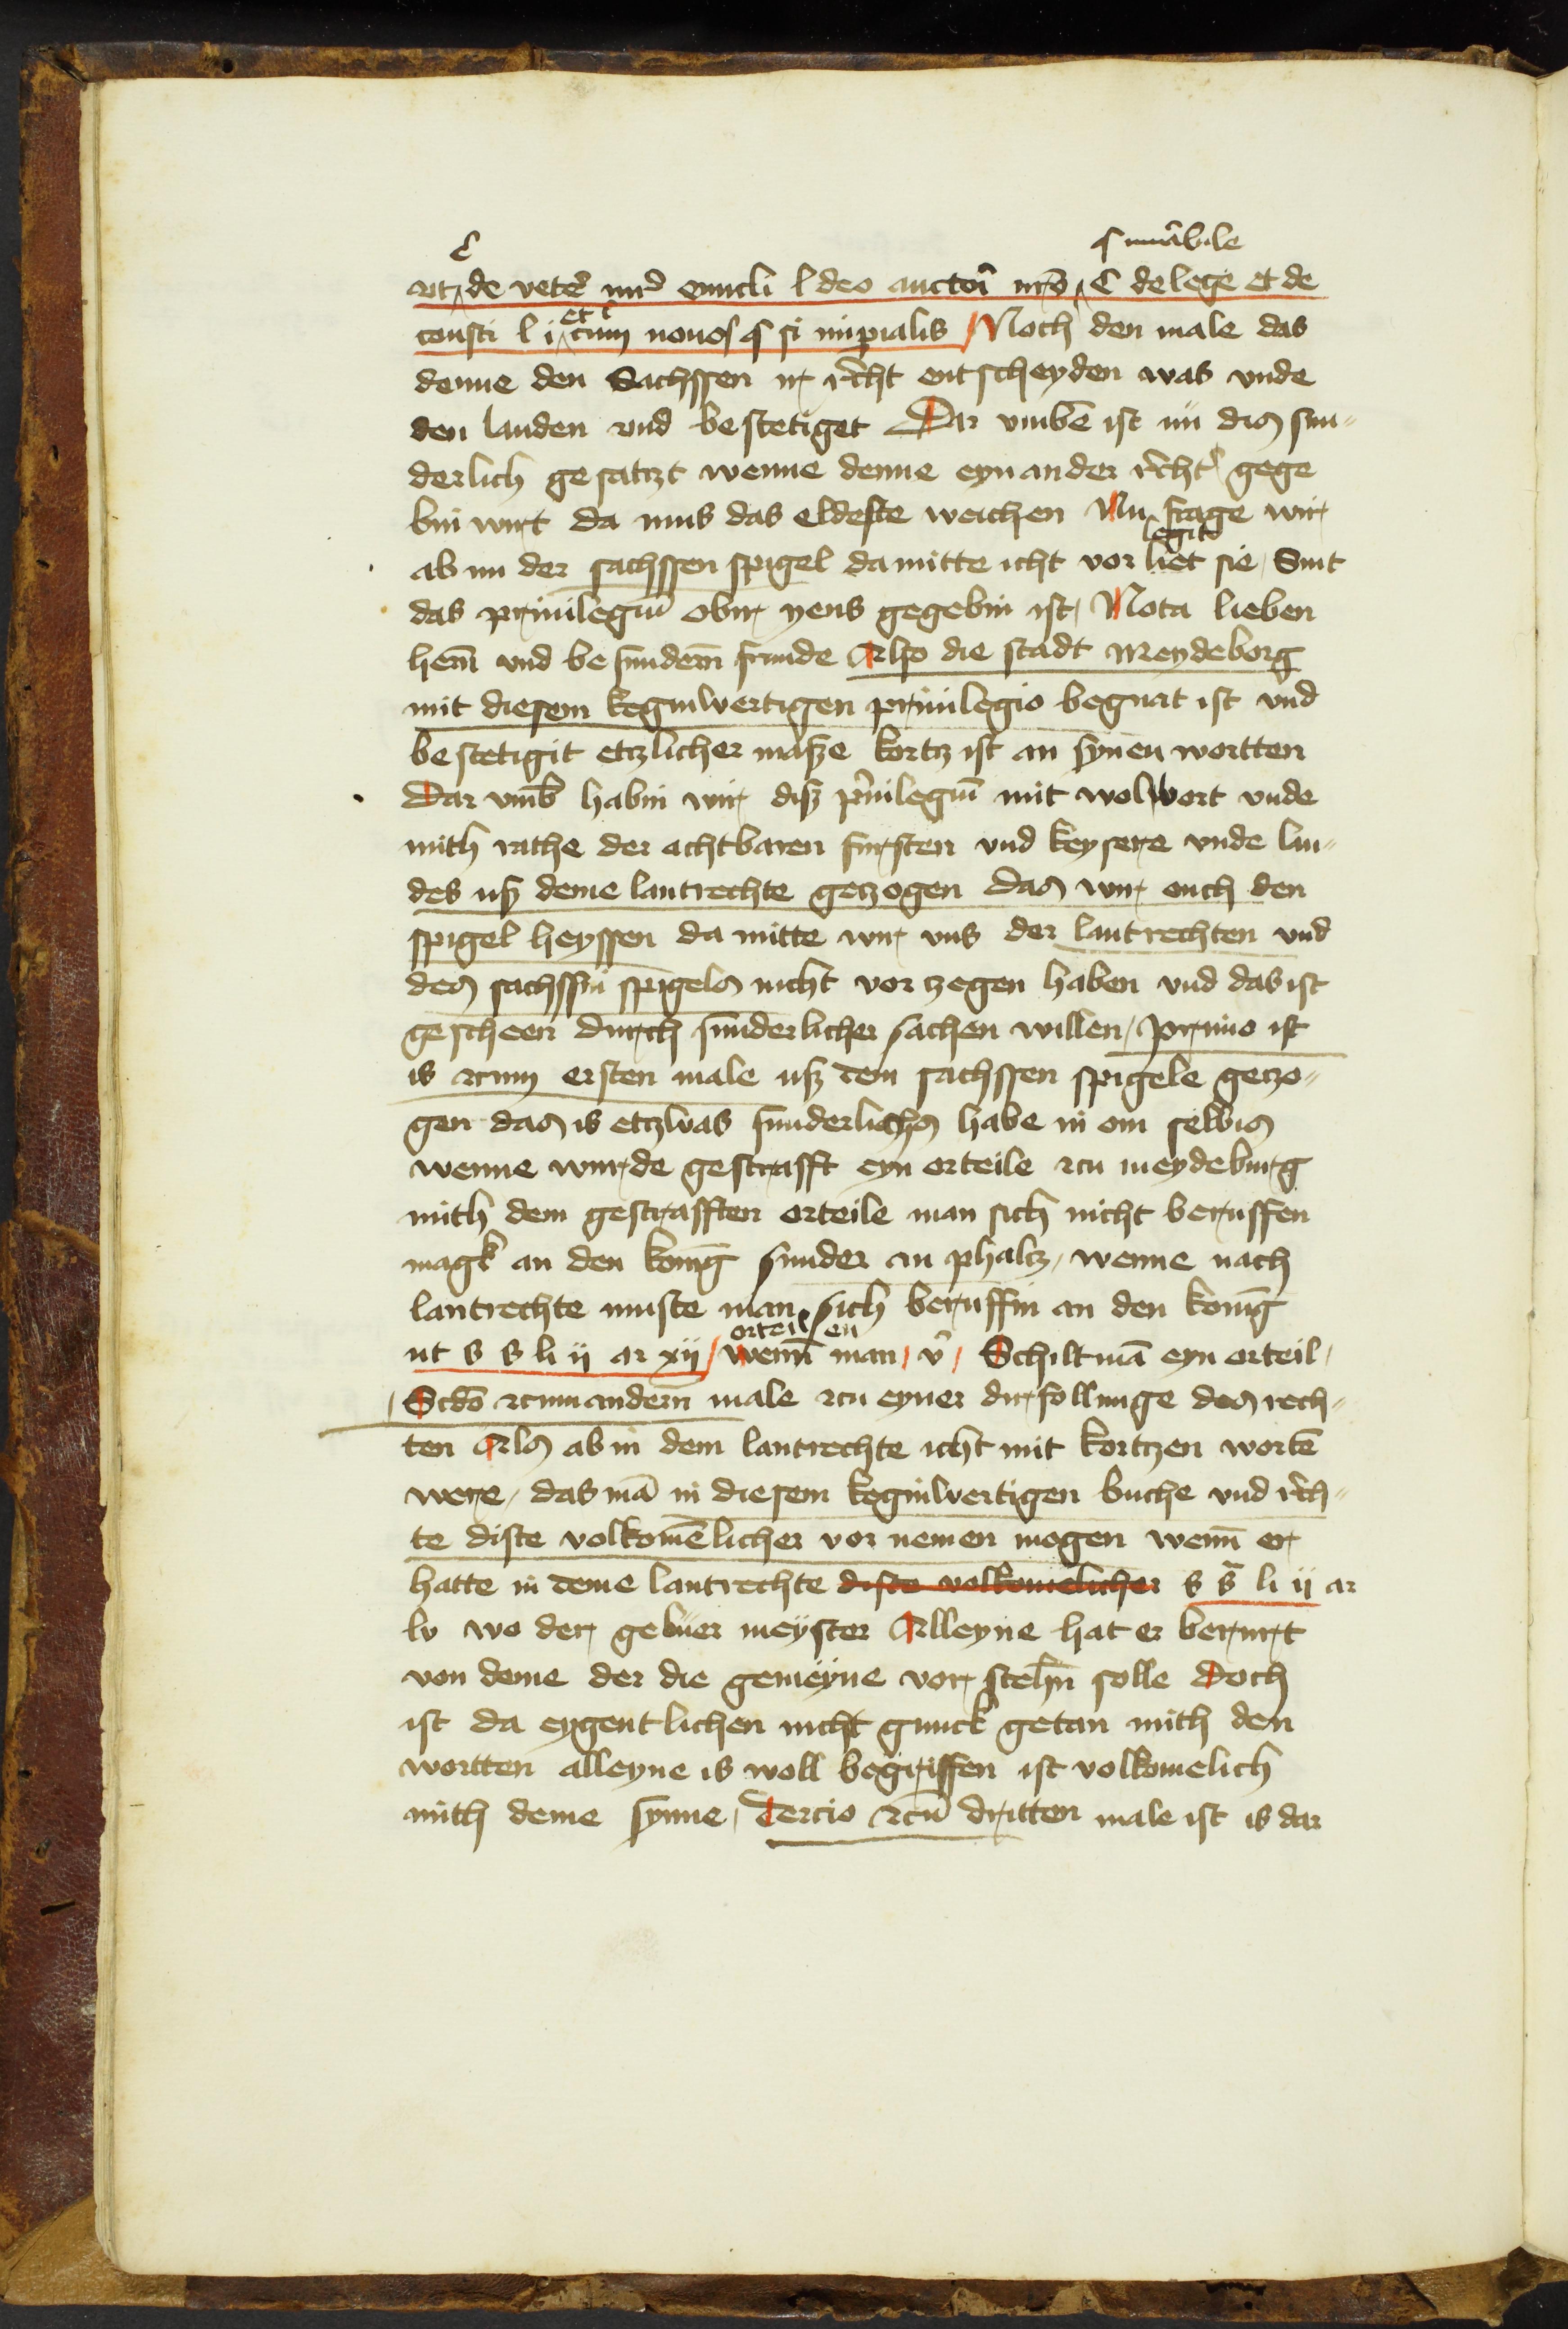 C § mirabile
ut de veter iur enucli l deo auctor nro C de lege et de
consti l i et C cum novos § si imperialis Noch den male das
denne den Sachssen ir recht entscheyden was vnde
den landen vnd bestetiget Dar vmbe ist nu dis sun-
derlich gesatczt wenne denne eyn ander recht gege
bin wirt da mus das eldeste weichen Nu frage wir
ab nu der sachssen spigel da mitte icht vor legit sie Sint
das priuilegiu obir yens gegebin ist Nota lieben
hern vnd besundern frunde Also die stadt Meydeborg
mit diesem keginwertigen priuilegio begnat ist vnd
bestetigit etzlicher masze kortz ist an synen wortten
Dar vmb habin wir disz priuilegiu mit wolwort vnde
mith rathe der achtbaren fursten vnd keysere vnde lan-
des usz deme lantrechte getzogen das wir ouch den
spigel heyssen da mitte wir vns der lantrechten vnd
des sachssin spigels nicht vor tzegen haben vnd das ist
gescheen durch sunderlicher sachen willen primo ist
is czum ersten male usz dem sachssen spigele getzo-
gen das is etzwas sunderlichs habe in om selbis
wenne wurde gestrafft eyn orteile czu meydeburg
mith dem gestrafften orteile man sich nicht beruffen
magk an den konig sunder an phaltz wenne nach
lantrechte muste man sich beruffin an den konig
ut s s li ii ar xii wenn man orteilen v Schilt ma eyn orteil
Scdo czum andern male czu eyner dirfollunge des rech-
ten Als ab in dem lantrechte icht mit kortzen worte
were das ma in diesem keginwertigen buche vnd rech-
te diste volkomelicher vor nemen mogen wenn er
hatte in deme lantrechte diste volkomelicher s s li ii ar
lv wo der gebuer meyster Alleyne hat er berurt
von deme der die gemeyne vor stehn solle Doch
ist da eygentlichen nicht gnuck getan mith den
wortten alleyne is woll begriffen ist volkomelich
mith deme synne Tercio czu dritten male ist is dar